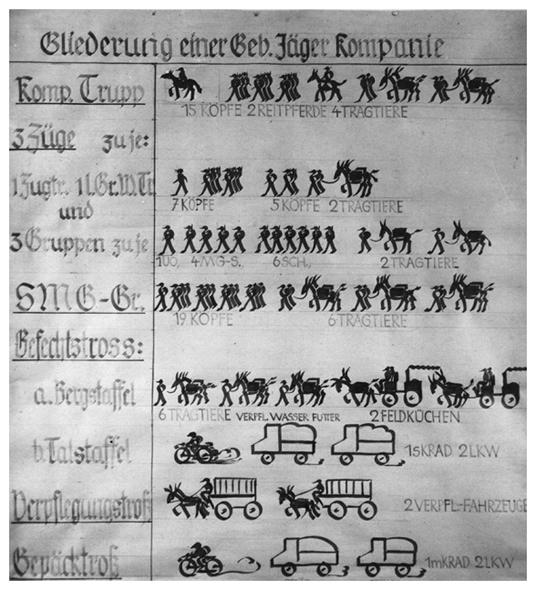 Gliederung einer Geb. Jäger Kompanie
Komp. Trupp
15 KÖPFE 2 REITPFERDE 4 TRAGTIERE
3 Züge zu je:
1 Zugtr. 1 l.Gr.W.Tr.
und
7 KÖPFE 5 KÖPFE 2 TRAGTIERE
3 Gruppen zu je
4 MG-S., 6 SCH., 2 TRAGTIERE
SMG-Gr.
19 KÖPFE 6 TRAGTIERE
Gefechtstross:
a. Bergstaffel
6 TRAGTIERE VERPFL. WASSER FUTTER 2 FELDKÜCHEN
b. Talstaffel
1 sKRAD 2 LKW
Verpflegungstroß
2 VERPFL-FAHRZEUGE
Gepäcktroß
1 mKRAD 2 LKW